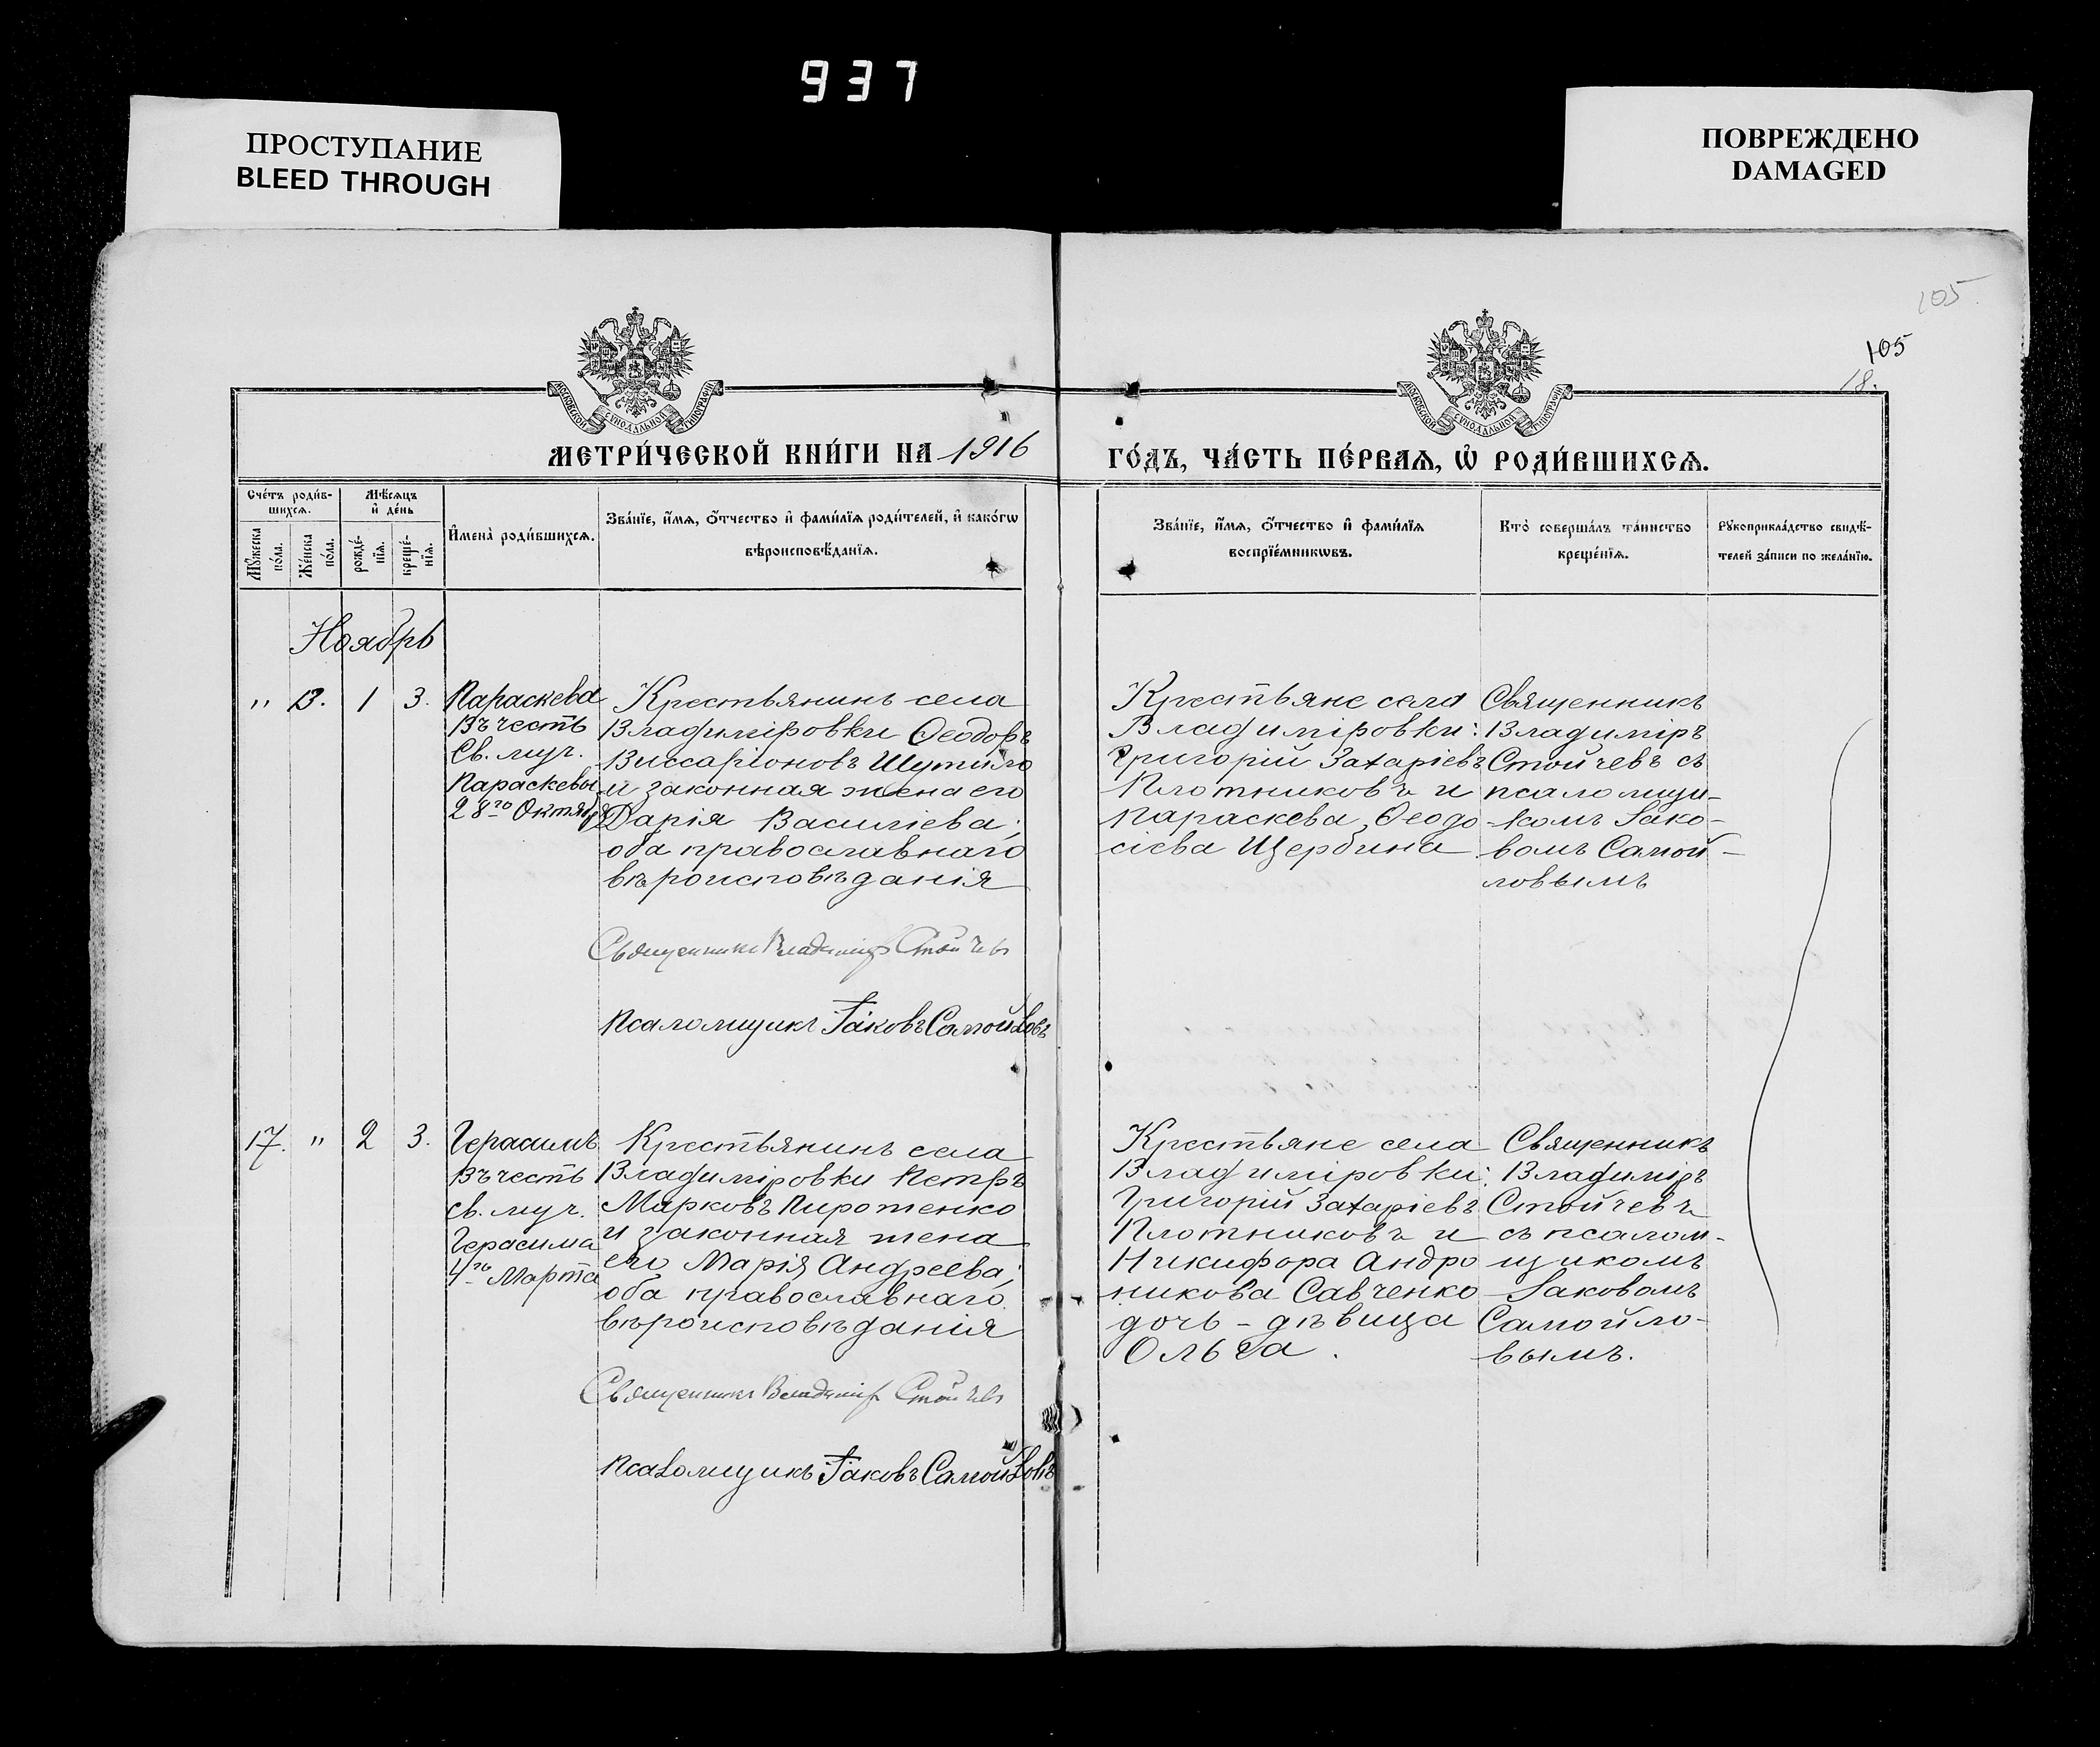 937
ПРОСТУПАНИЕ
BLEED THROUGH
ПОВРЕЖДЕНО
DAMAGED
105
105
18.
МОСКОВСКОЙ СѴНОДАЛЬНОЙ ТИПОГРАФІИ
МОСКОВСКОЙ СѴНОДАЛЬНОЙ ТИПОГРАФІИ
МЕТРИ́ЧЕСКОЙ КНИ́ГИ НА 1916
ГО́ДЪ, ЧА́СТЬ ПЕ́РВАЯ, Ѡ҆ РОДИ́ВШИХСѦ.
Сче́тъ роди́в-
шихсѧ.
Мꙋ́жеска
по́ла.
Же́нска
по́ла.
Мѣ́сѧцъ
и҆ де́нь
рожде́-
нїѧ.
креще́-
нїѧ.
И҆мена̀ роди́вшихсѧ.
Зва́нїе, и҆́мѧ, ѻ҆́тчество и҆ фами́лїѧ роди́телей, и҆ како́гѡ
вѣроисповѣ́данїѧ.
Зва́нїе, и҆́мѧ, ѻ҆́тчество и҆ фами́лїѧ
воспрїе́мникѡвъ.
Кто̀ соверша́лъ та́инство
креще́нїѧ.
Рꙋкоприкла́дство свидѣ́-
телей за́писи по жела́нїю.
Ноябрь
" 13. 1 3.
Параскева
Въ честь
Св. муч.
Параскевы
28го Октября
Крестьянинъ села
Владиміровки Ѳеодоръ
Виссаріоновъ Шутыло
и законная жена его
Дарія Василіева;
оба православнаго
вѣроисповѣданія
Священникъ Владиміръ Стойчевъ
Псаломщикъ Іаковъ Самойловъ
Крестьяне села
Владиміровки:
Григорій Захаріевъ
Плотниковъ и
Параскева Ѳеодо
сіева Щербина
Священникъ
Владиміръ
Стойчевъ съ
псаломщи-
комъ Іако-
вомъ Самой-
ловымъ
17. " 2 3.
Герасимъ
Въ честь
св. муч.
Герасима
4го Марта
Крестьянинъ села
Владиміровки Петръ
Марковъ Пиротенко
и законная жена
его Марія Андреева;
оба православнаго
вѣроисповѣданія
Священникъ Владиміръ Стойчевъ
Псаломщикъ Іаковъ Самойловъ
Крестьяне села
Владиміровки:
Григорій Захаріевъ
Плотниковъ и
Никифора Андро
никова Савченко
дочь - дѣвица
Ольга.
Священникъ
Владиміръ
Стойчевъ
съ псалом-
щикомъ
Іаковомъ
Самойло-
вымъ.